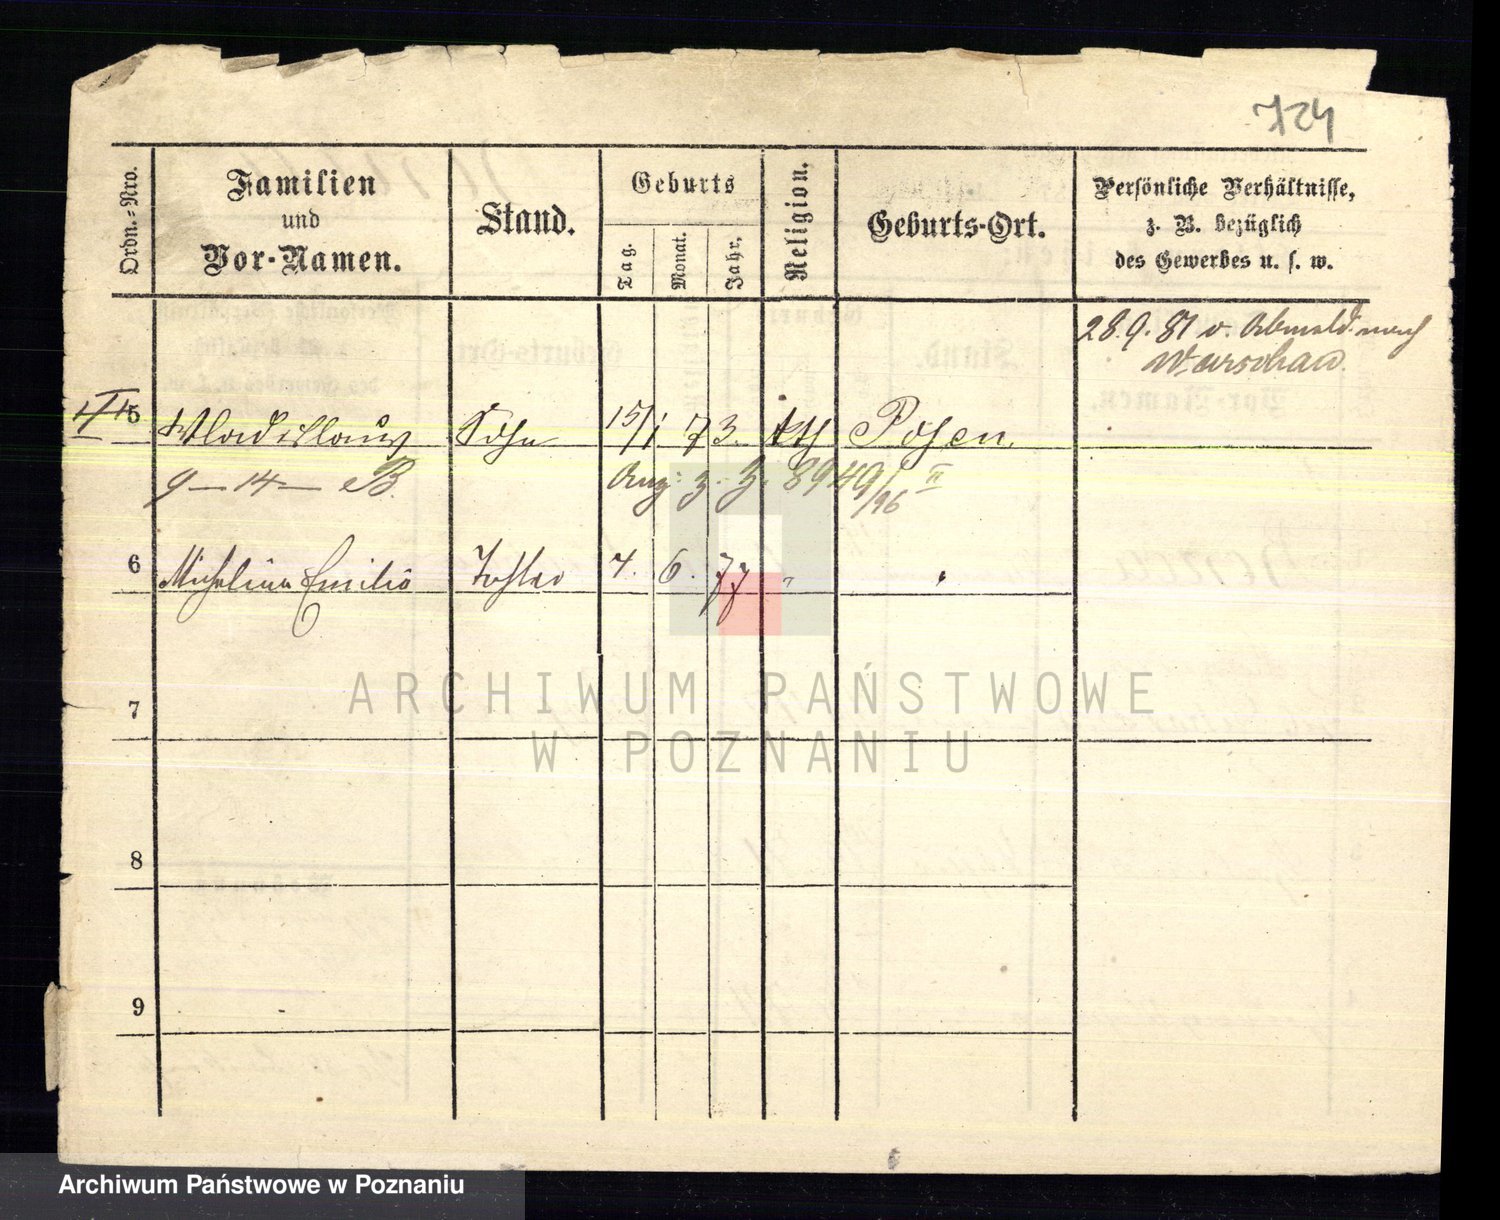 724
Ordn.-Nro.
Familien
und
Vor-Namen.
Stand.
Geburts
Tag.
Monat.
Jahr,
Religion,
Geburts-Ort.
Persönliche Verhältnisse,
z. B. bezüglich
des Gewerbes u. s. w.
28.9.81 v. Abmeld. nach
Warschau.
5 Wladislaus Sohn 15/1 73. kth Posen.
9-14- B. Anz z. Z. 8949/96 II
6 Michelina Emilie Tochter 7. 6. 77 "
7
8
9
ARCHIWUM PAŃSTWOWE
W POZNANIU
Archiwum Państwowe w Poznaniu